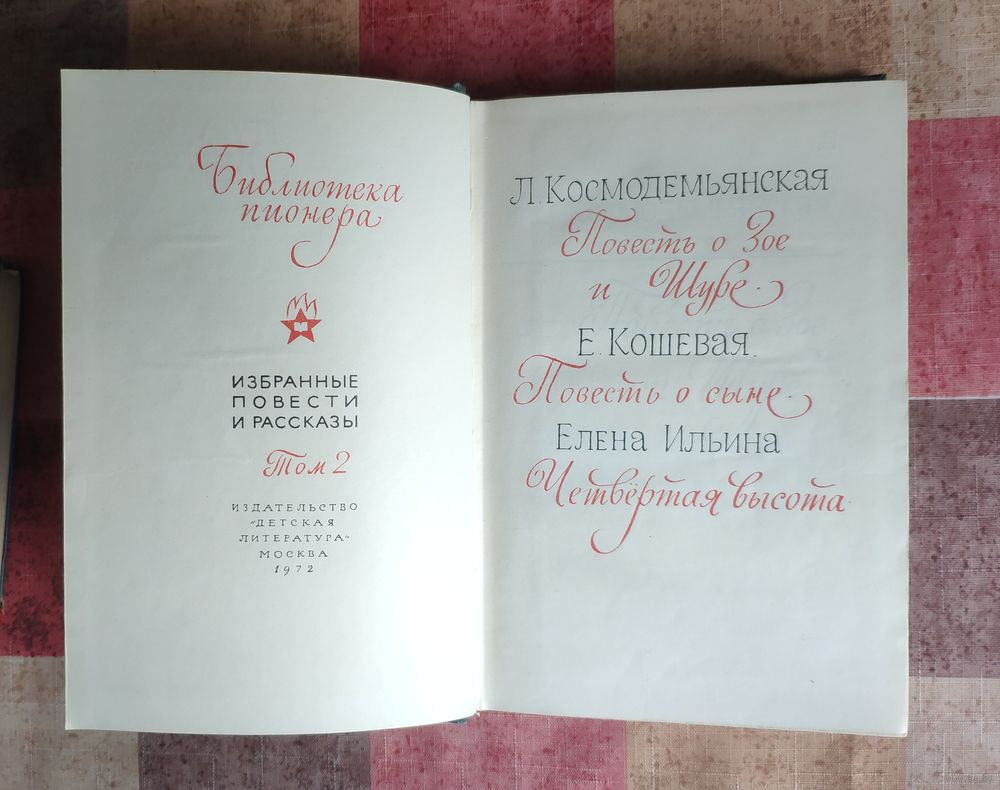 Библиотека
пионера
ИЗБРАННЫЕ
ПОВЕСТИ
И РАССКАЗЫ
Том 2
ИЗДАТЕЛЬСТВО
"ДЕТСКАЯ
ЛИТЕРАТУРА"
МОСКВА
1972
Л. КОСМОДЕМЬЯНСКАЯ
Повесть о Зое
и Шуре.
Е. КОШЕВАЯ.
Повесть о сыне.
ЕЛЕНА ИЛЬИНА
Четвёртая высота.